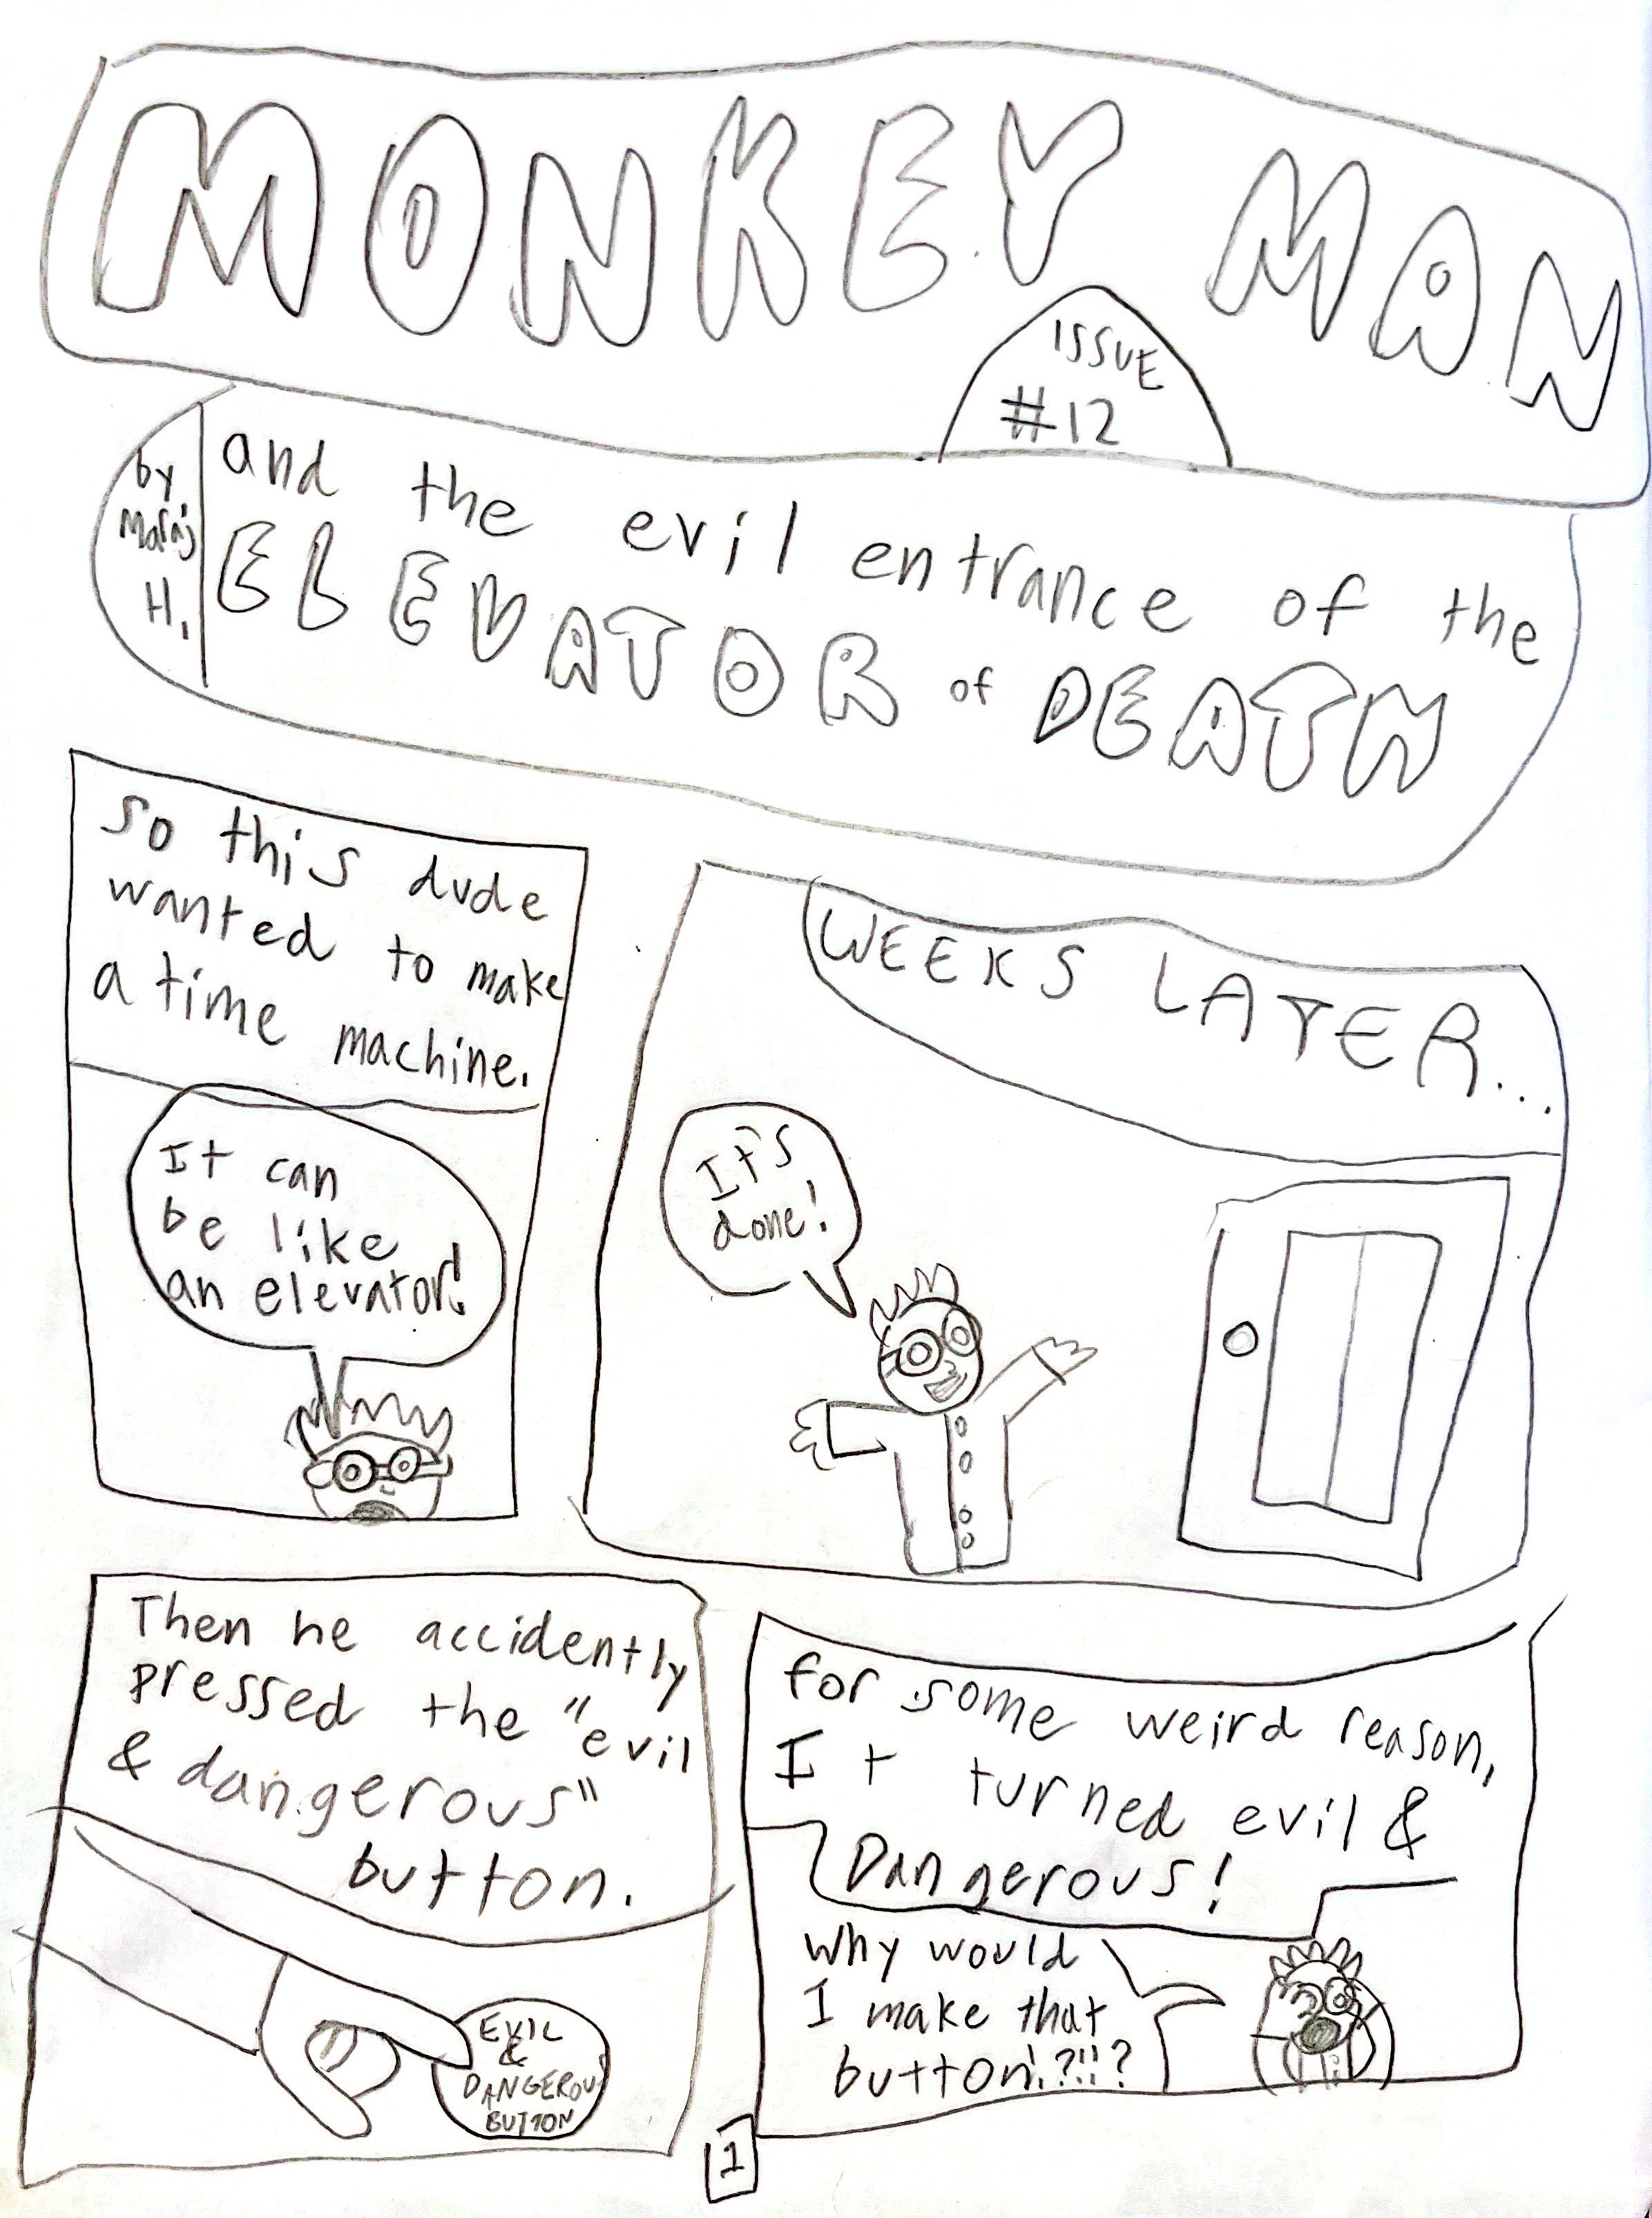 MONKEY MAN
ISSUE
#12
by
H.
and the evil entrance of the
ELEVATOR of DEATH
So this dude
wanted to make
a time machine.
It can
be like
an elevator!
WEEKS LATER...
It's
done!
Then he accidently
pressed the "evil
& dangerous"
button.
EVIL
&
DANGEROUS
BUTTON
for some weird reason,
It turned evil &
Dangerous!
Why would
I make that
button!?!!?
1